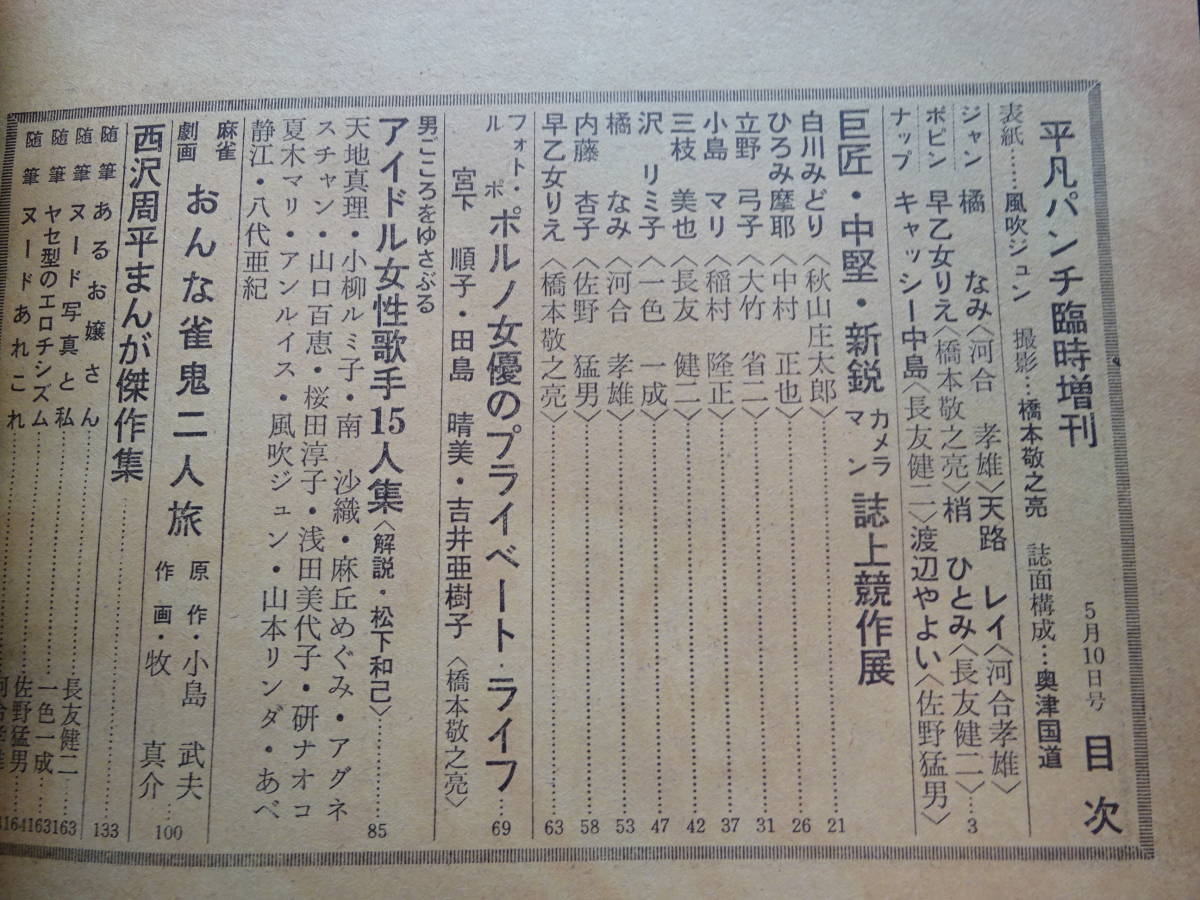 平凡パンチ臨時増刊 5月10日号 目次
表紙……風吹ジュン 撮影…橋本敬之亮 誌面構成…奥津国道
ジャンボピンナップ
橘 なみ〈河合 孝雄〉天路 レイ〈河合孝雄〉
早乙女りえ〈橋本敬之亮〉梢 ひとみ〈長友健二〉…3
キャッシー中島〈長友健二〉渡辺やよい〈佐野猛男〉
巨匠・中堅・新鋭カメラマン誌上競作展
白川みどり〈秋山庄太郎〉……21
ひろみ摩耶〈中村 正也〉……26
立野 弓子〈大竹 省二〉……31
小島 マリ〈稲村 隆正〉……37
三枝 美也〈長友 健二〉……42
沢 リミ子〈一色 一成〉……47
橘 なみ〈河合 孝雄〉……53
内藤 杏子〈佐野 猛男〉……58
早乙女りえ〈橋本敬之亮〉……63
フォト・ルポ ポルノ女優のプライベート・ライフ……69
宮下 順子・田島 晴美・吉井亜樹子〈橋本敬之亮〉
男ごころをゆさぶる
アイドル女性歌手15人集〈解説・松下和己〉……85
天地真理・小柳ルミ子・南 沙織・麻丘めぐみ・アグネ
スチャン・山口百恵・桜田淳子・浅田美代子・研ナオコ
夏木マリ・アンルイス・風吹ジュン・山本リンダ・あべ
静江・八代亜紀
麻雀劇画 おんな雀鬼二人旅 原作・小島 武夫 作画・牧 真介…100
西沢周平まんが傑作集……133
随筆 あるお嬢さん……長友健二…163
随筆 ヌード写真と私……一色一成…163
随筆 ヤセ型のエロチシズム……佐野猛男…164
随筆 ヌードあれこれ